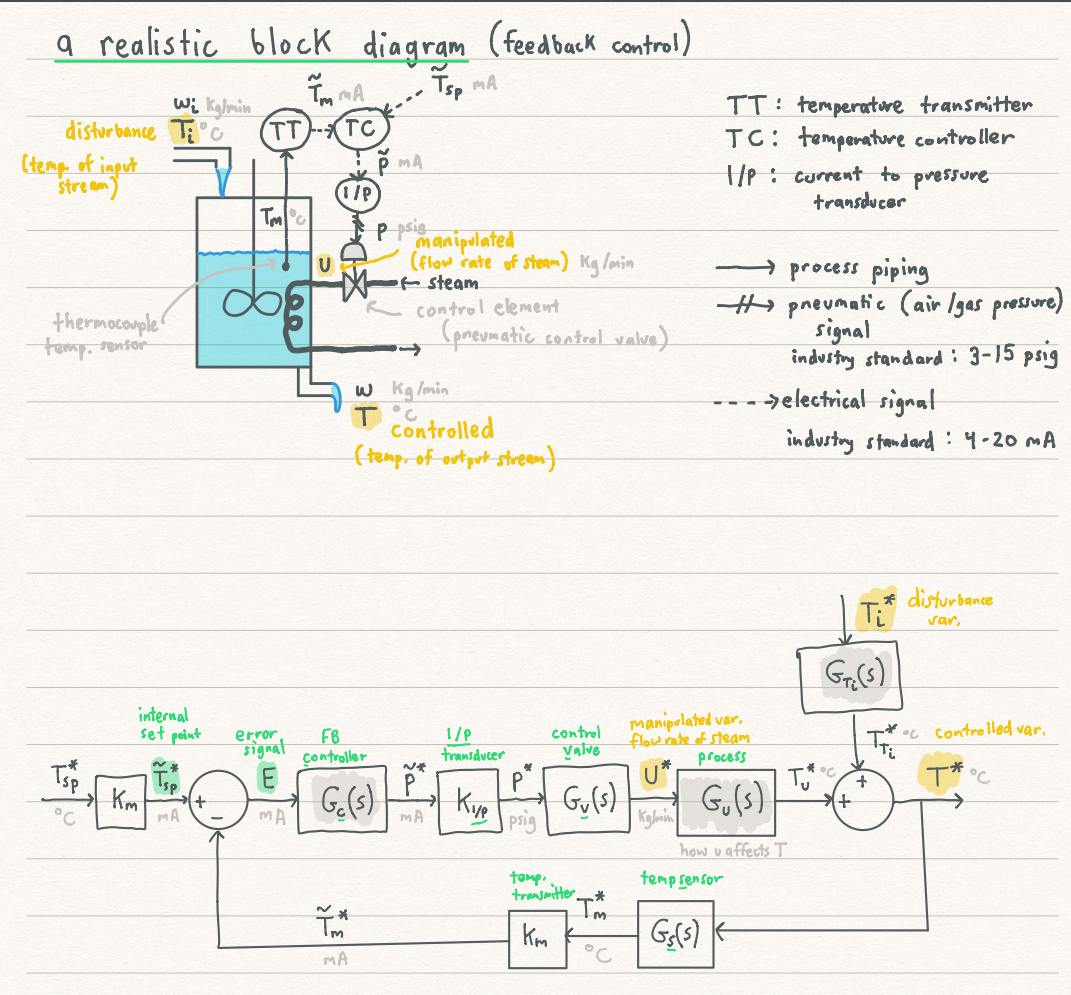 a realistic block diagram (feedback control)
T̃m mA
T̃sp mA
wi Kg/min
disturbance Ti °C
(temp. of input
stream)
TT
TC
p̃ mA
I/P
Tm °C
p psig
manipulated
U (flow rate of steam) Kg/min
steam
control element
(pneumatic control valve)
thermocouple
temp. sensor
w Kg/min
T °C
controlled
(temp. of output stream)
TT : temperature transmitter
TC : temperature controller
I/P : current to pressure
transducer
process piping
pneumatic (air/gas pressure)
signal
industry standard : 3-15 psig
electrical signal
industry standard : 4-20 mA
Ti* disturbance
var.
GTi(s)
TTi* °C
controlled var.
T* °C
internal
set point
error
signal
FB
controller
I/P
transducer
control
valve
manipulated var.
flow rate of steam
process
Tsp*
°C
Km
T̃sp*
mA
+
-
E
mA
Gc(s)
p̃*
mA
KI/P
P*
psig
Gv(s)
U*
Kg/min
Gu(s)
how u affects T
Tu* °C
+
+
temp.
transmitter
temp sensor
T̃m*
mA
Km
Tm*
°C
Gs(s)